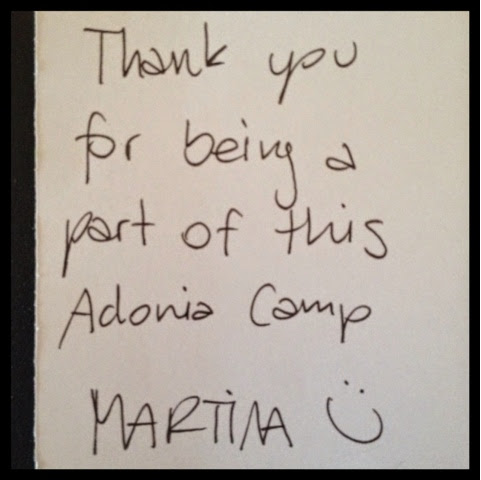 Thank you
for being a
part of this
Adonia Camp
MARTINA Ü